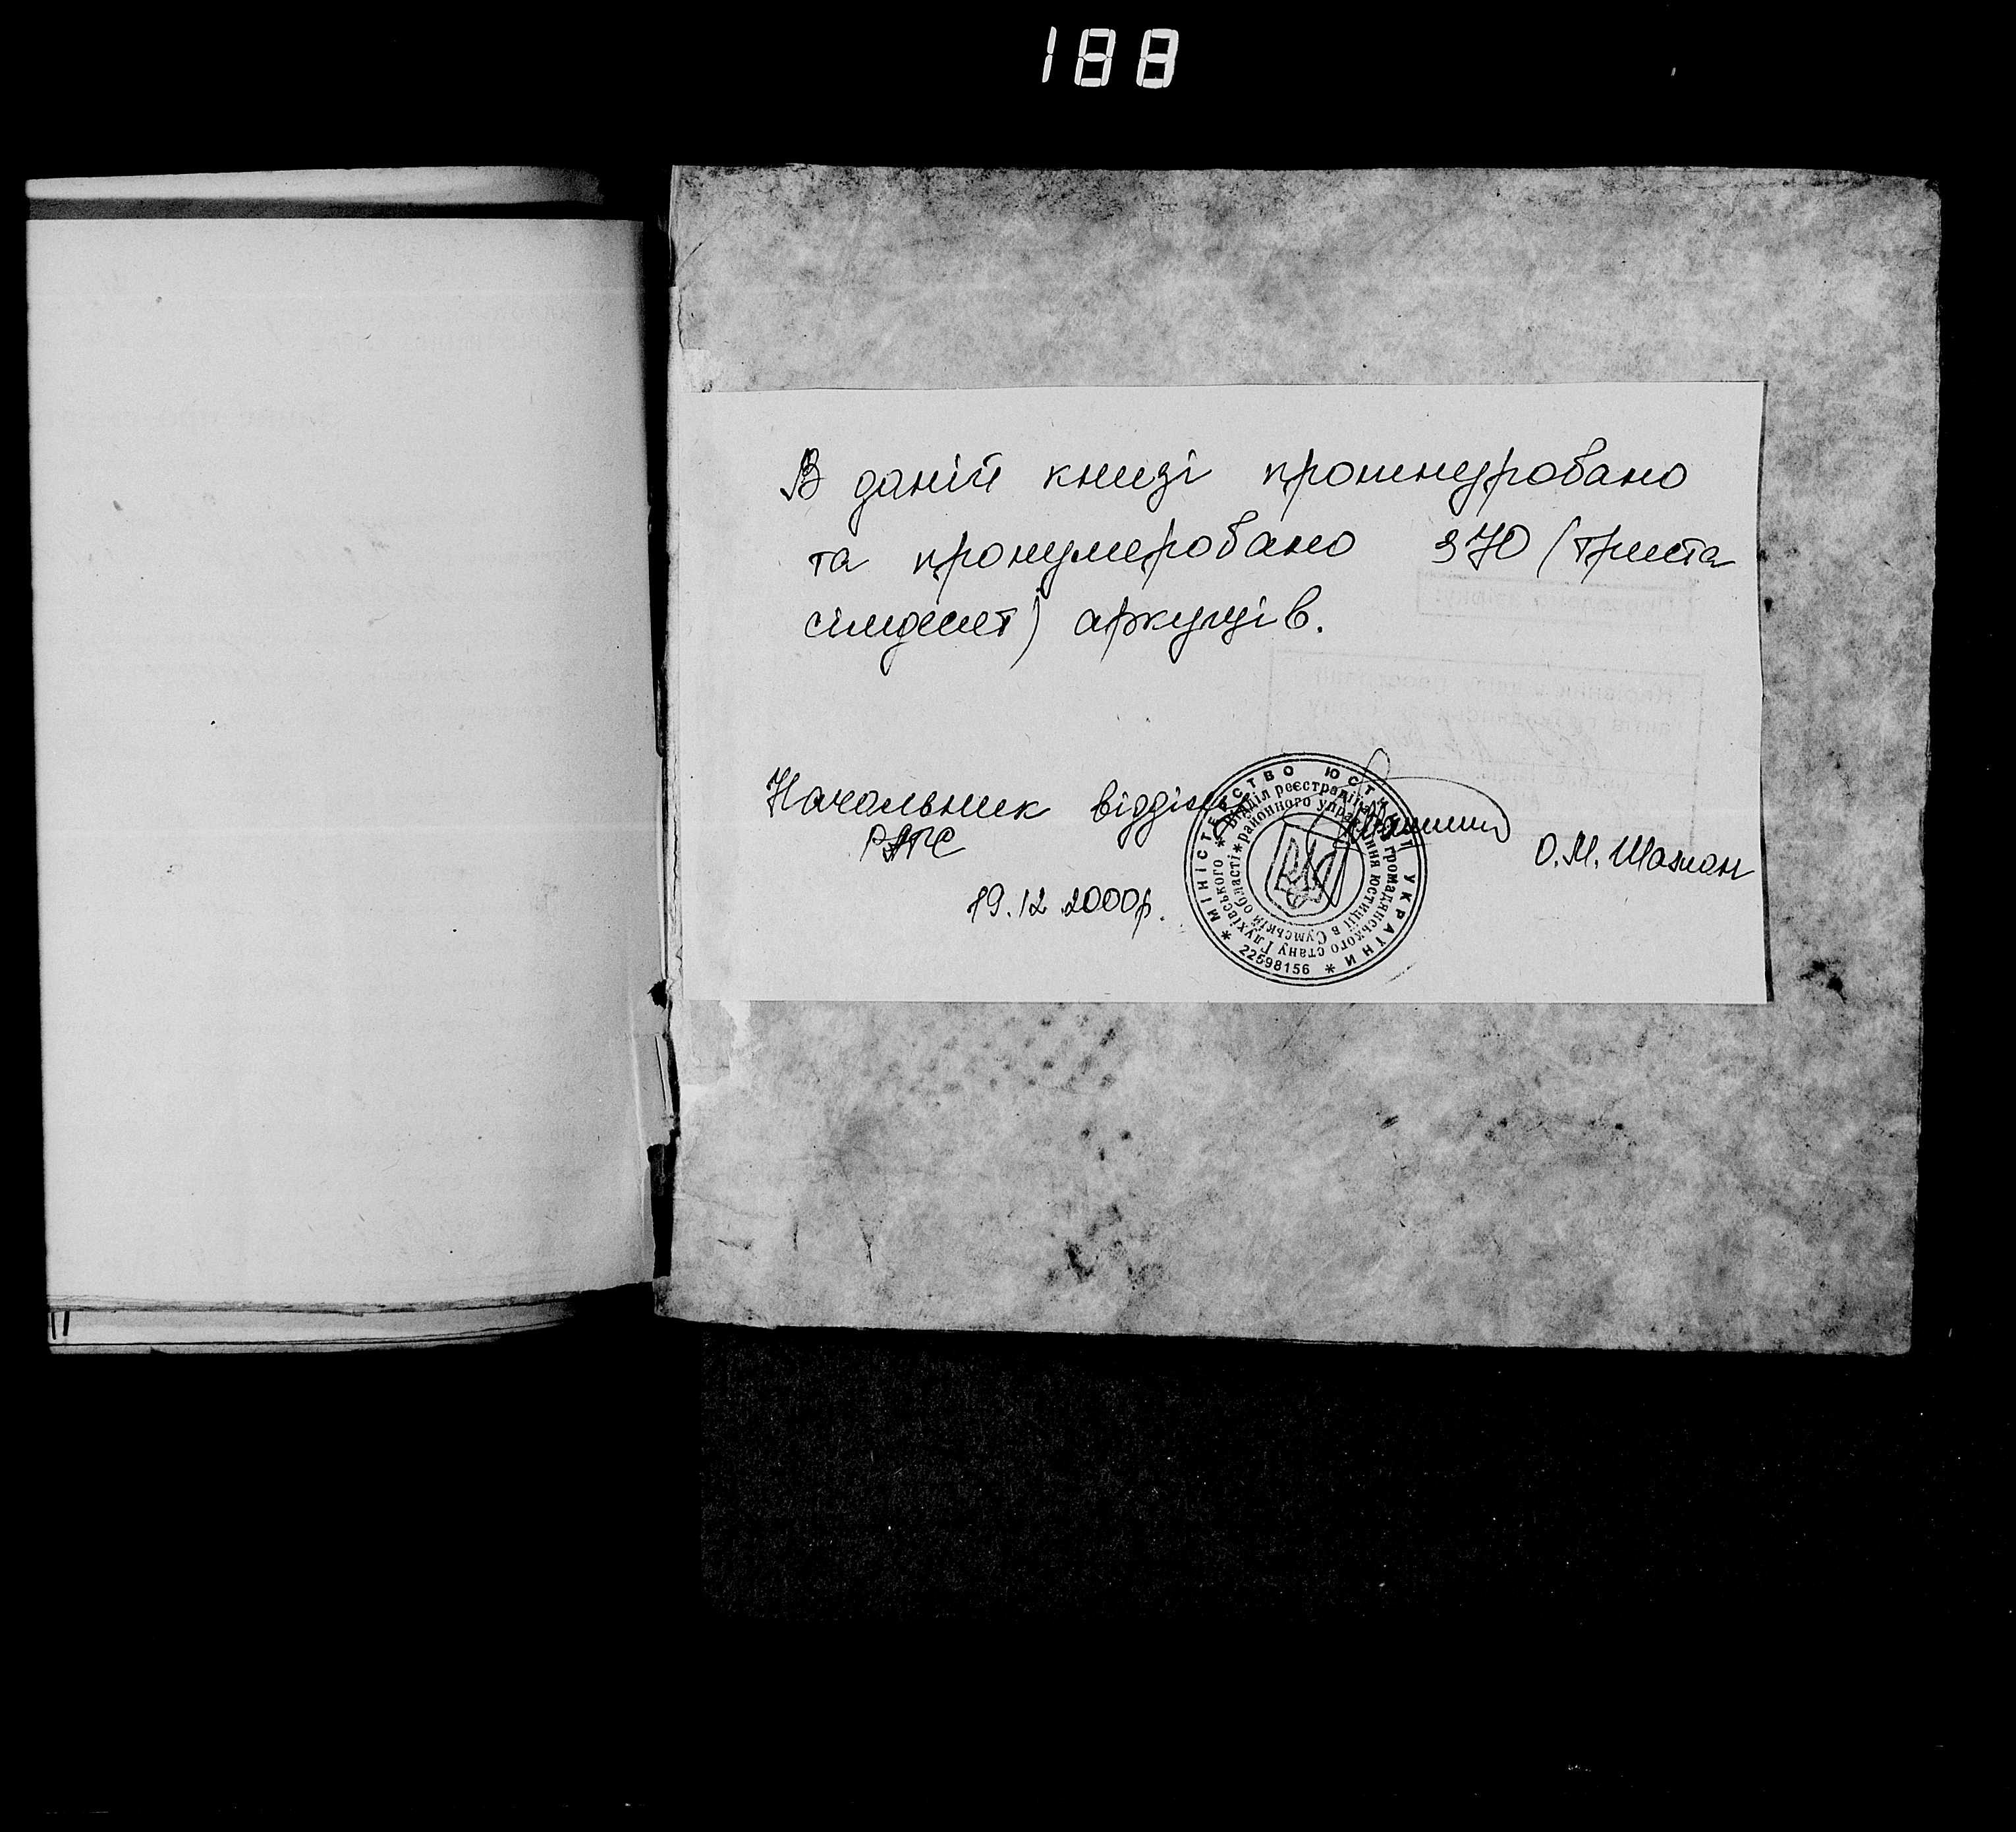 188
В даній книзі прошнуровано
та пронумеровано 370 (триста
сімдесят) аркушів.
Начальник відділу
РАГС
О.М. Шаман
19.12.2000р.
* МІНІСТЕРСТВО ЮСТИЦІЇ УКРАЇНИ *
22598156
* Відділ реєстрації актів громадянського стану Глухівського
* районного управління юстиції в Сумській області